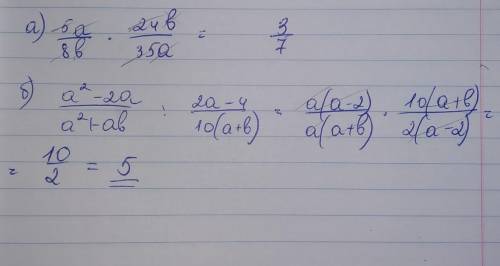 а) 5a/8b · 24b/35a = 3/7
б) a² - 2a/a² + ab : 2a - 4/10(a+b) = a(a-2)/a(a+b) · 10(a+b)/2(a-2) =
= 10/2 = 5